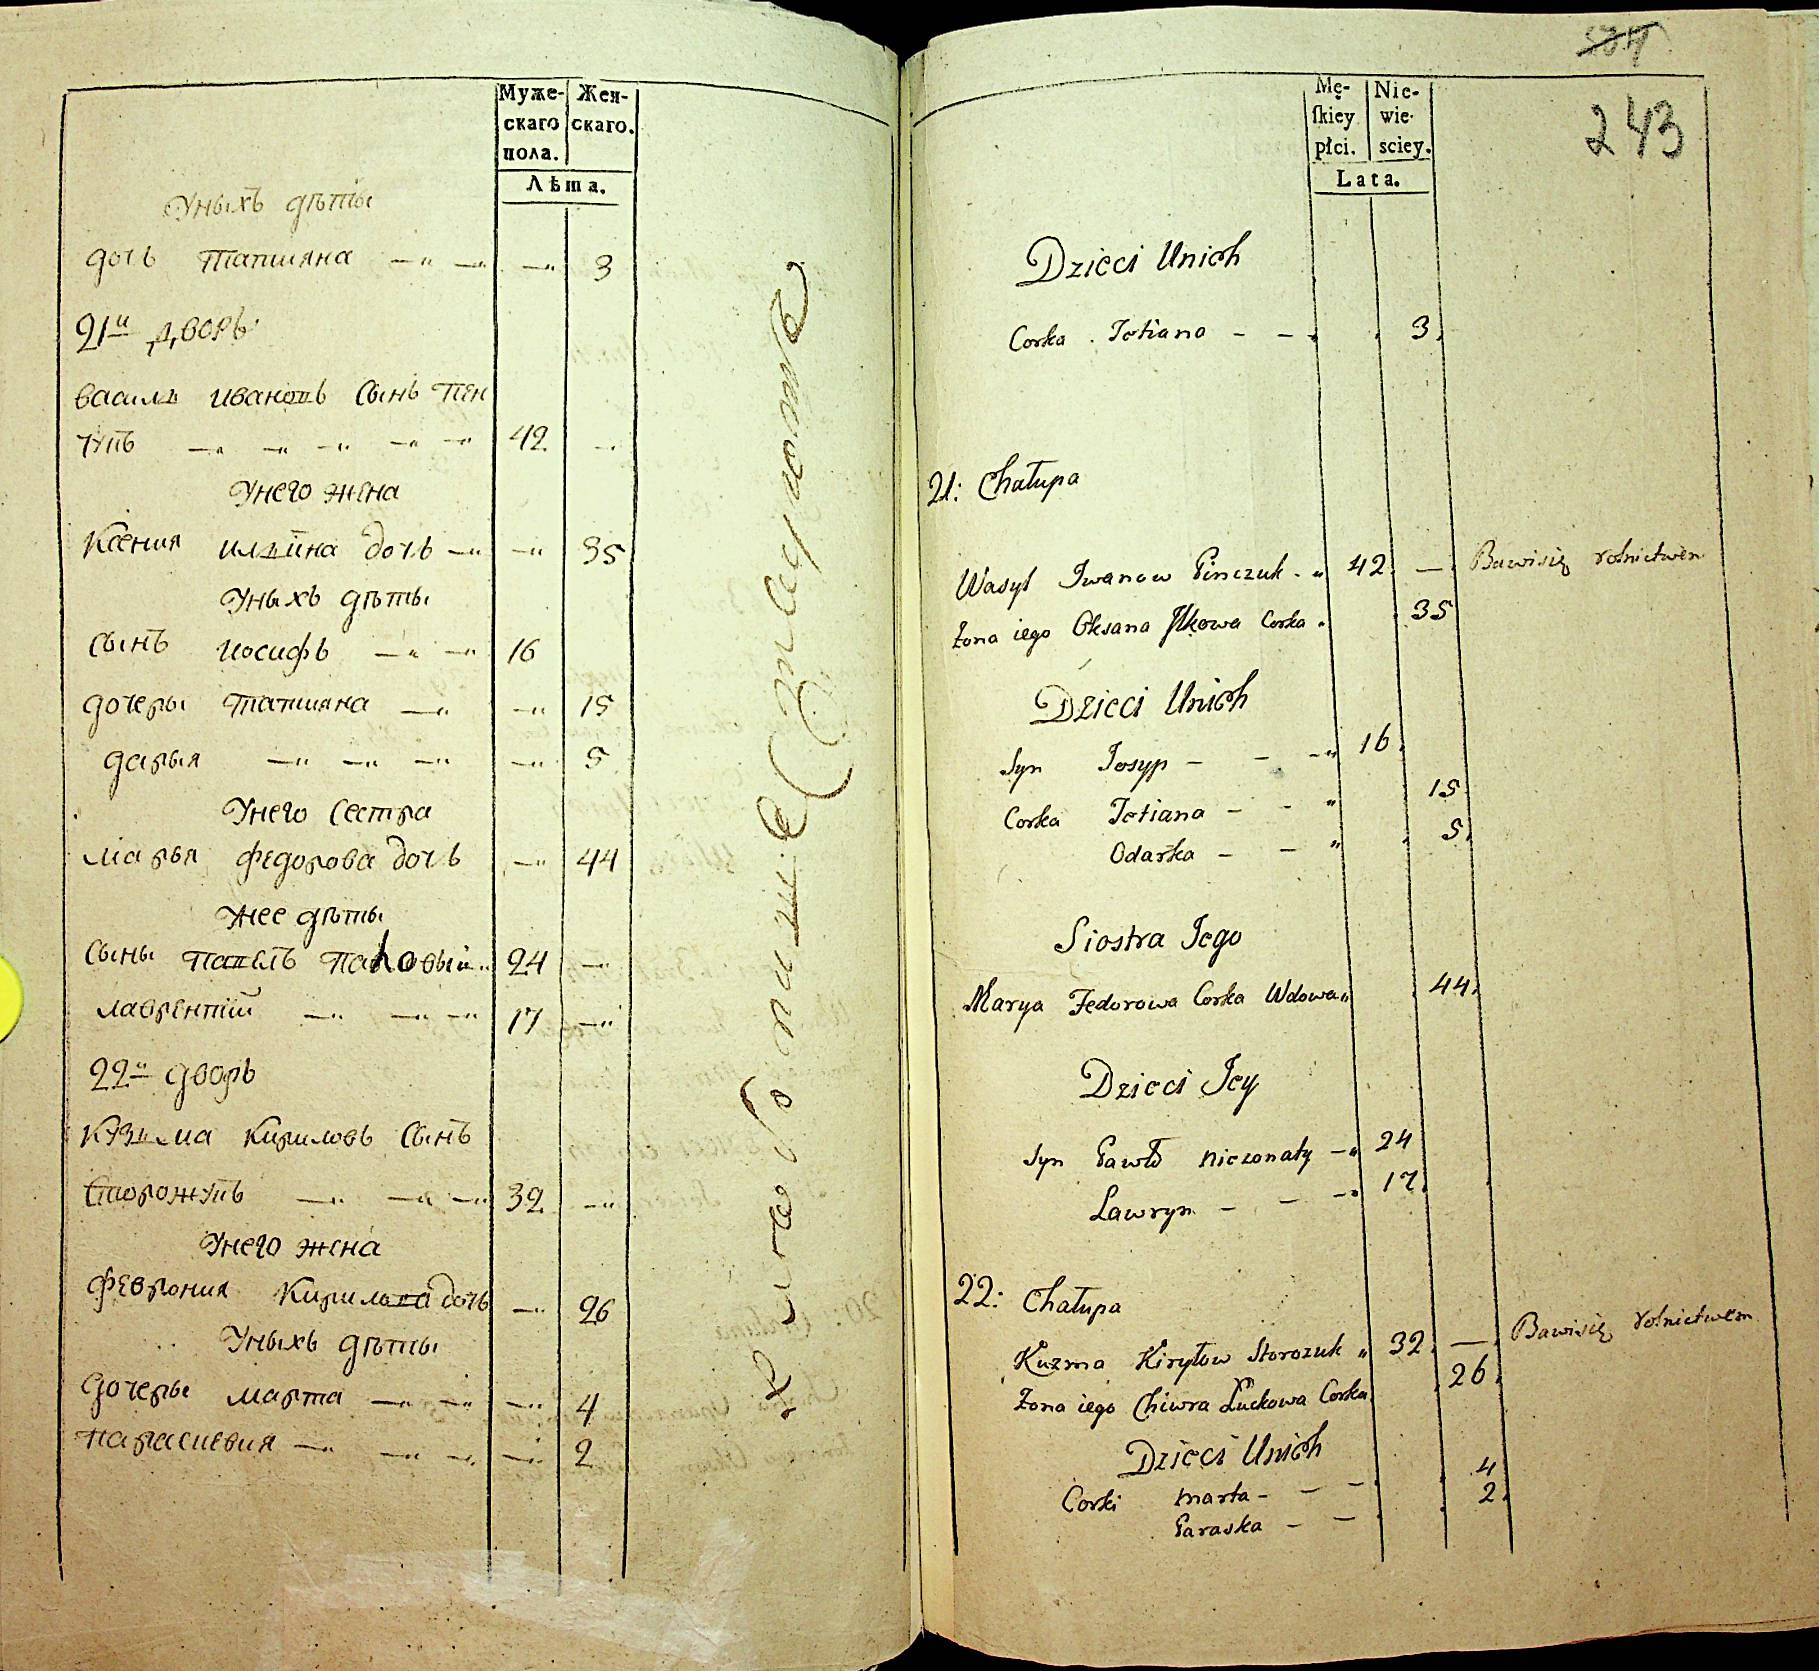 Муже- Жен-
скаго скаго.
пола.
Лѣта.
Уныхъ дѣты
дочь татияна 3
21й дворъ
василь ивановъ сынъ пен
чукъ 42
Унего жена
Ксения илїина дочь 35
Уныхъ дѣты
сынъ иосифъ 16
дочеры татияна 15
дарья 5
Унего сестра
марья федорова дочь 44
Унее дѣты
сыны павелъ
24
лаврентий 17
22й дворъ
Кузьма кириловъ сынъ
сторожукъ 32
Унего жена
феврония кирилова дочь 26
Уныхъ дѣты
дочеры марта 4
парасцевия 2
243
Mę- Nie-
ſkiey wie-
płci. sciey.
Lata.
Dzieci Unich
Corka Tetiana 3
21: Chałupa
Wasyl Iwanow Pinczuk 42 Bawisię rolnictwem
Żona iego Oksana Ilkowa Corka 35
Dzieci Unich
Syn Josyp 16
Corka Tetiana 15
Odarka 5
Siostra Jego
Marya Fedorowa Corka Wdowa 44
Dzieci Jey
Syn Pawło nieżonaty 24
Lawryn 17
22: Chałupa
Kuzma Kiryłow Storozuk 32 Bawisię rolnictwem
Żona iego Chiwra Łuckowa Corka 26
Dzieci Unich
Corki Marta 4
Paraska 2